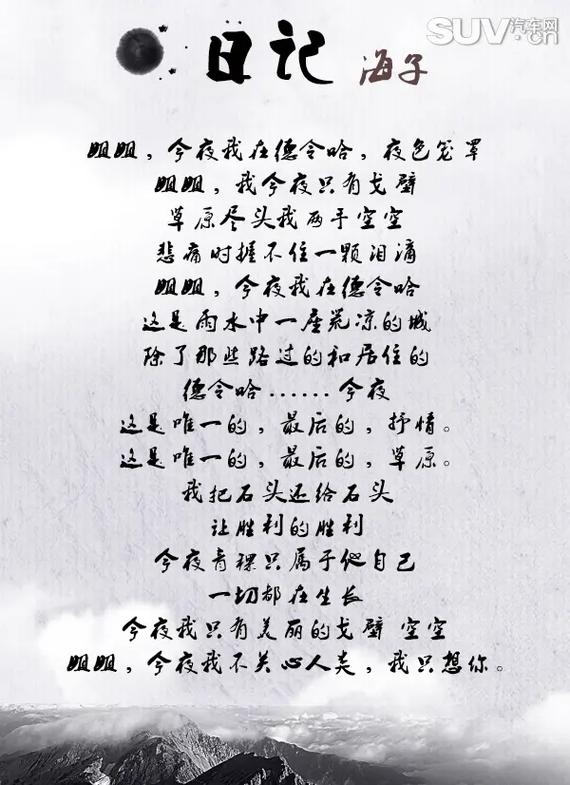 SUV汽车网
.cn
日记 海子
姐姐，今夜我在德令哈，夜色笼罩
姐姐，我今夜只有戈壁
草原尽头我两手空空
悲痛时握不住一颗泪滴
姐姐，今夜我在德令哈
这是雨水中一座荒凉的城
除了那些路过的和居住的
德令哈......今夜
这是唯一的，最后的，抒情。
这是唯一的，最后的，草原。
我把石头还给石头
让胜利的胜利
今夜青稞只属于他自己
一切都在生长
今夜我只有美丽的戈壁 空空
姐姐，今夜我不关心人类，我只想你。